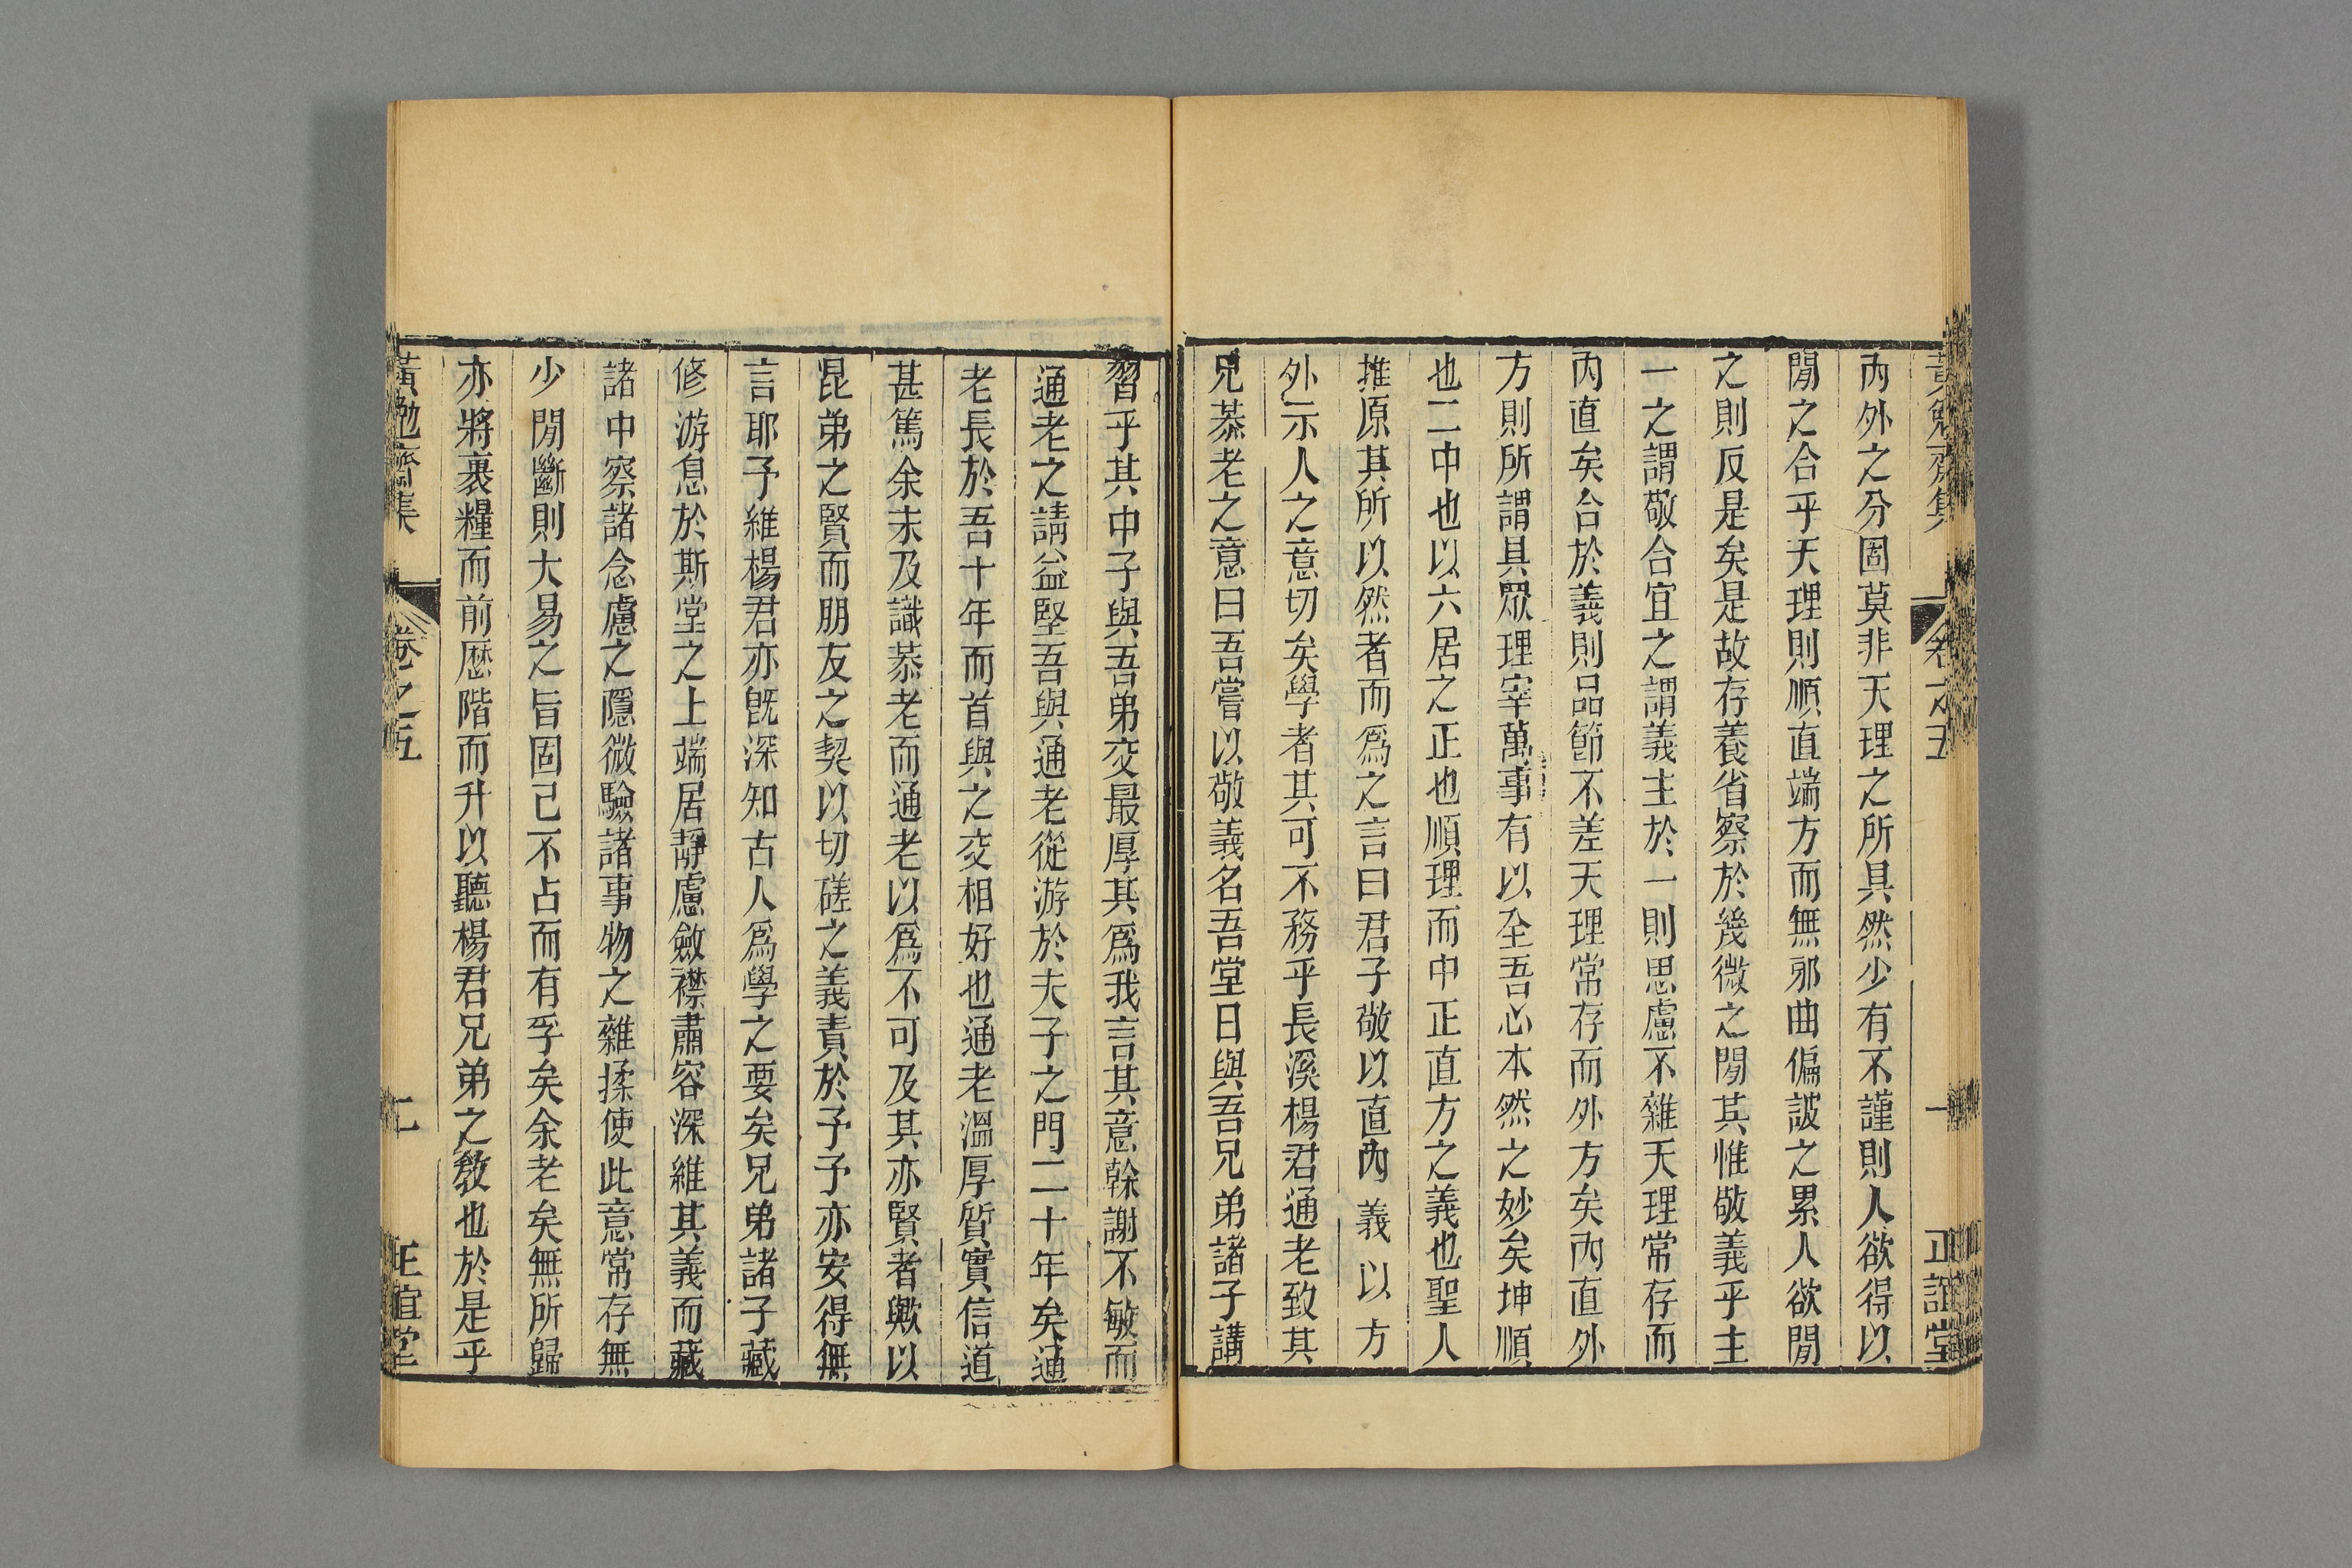 黃勉齋集 卷之五 一 正誼堂
內外之分固莫非天理之所具然少有不謹則人欲得以
閒之合乎天理則順直端方而無邪曲偏詖之累人欲閒
之則反是矣是故存養省察於幾微之閒其惟敬義乎主
一之謂敬合宜之謂義主於一則思慮不雜天理常存而
內直矣合於義則品節不差天理常存而外方矣內直外
方則所謂具眾理宰萬事有以全吾心本然之妙矣坤順
也二中也以六居之正也順理而中正直方之義也聖人
推原其所以然者而爲之言曰君子敬以直內義以方
外示人之意切矣學者其可不務乎長溪楊君通老致其
兄菾老之意曰吾嘗以敬義名吾堂日與吾兄弟諸子講
習乎其中子與吾弟交最厚其爲我言其意榦謝不敏而
通老之請益堅吾與通老從游於夫子之門二十年矣通
老長於吾十年而首與之交相好也通老溫厚質實信道
甚篤余未及識菾老而通老以爲不可及其亦賢者歟以
昆弟之賢而朋友之契以切磋之義責於予予亦安得無
言耶予維楊君亦旣深知古人爲學之要矣兄弟諸子藏
修游息於斯堂之上端居靜慮斂襟肅容深維其義而藏
諸中察諸念慮之隱微驗諸事物之雜揉使此意常存無
少閒斷則大易之旨固已不占而有孚矣余老矣無所歸
亦將裹糧而前歷階而升以聽楊君兄弟之敎也於是乎
黃勉齋集 卷之五 二 正誼堂